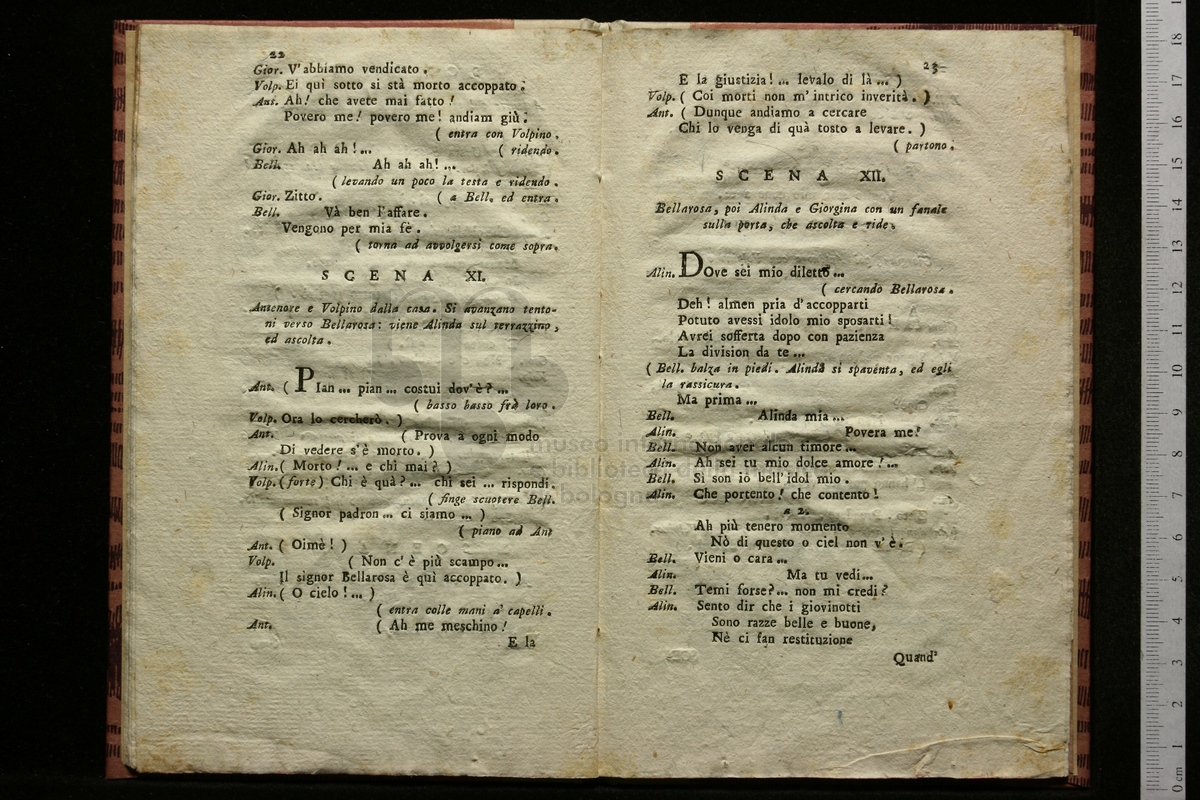 22
Gior. V'abbiamo vendicato.
Volp. Ei quì sotto si stà morto accoppato.
Ant. Ah! che avete mai fatto!
Povero me! povero me! andiam giù.
( entra con Volpino.
Gior. Ah ah ah!... ( ridendo.
Bell. Ah ah ah!...
( levando un poco la testa e ridendo.
Gior. Zitto. ( a Bell. ed entra.
Bell. Và ben l'affare.
Vengono per mia fè.
( torna ad avvolgersi come sopra.
SCENA XI.
Antenore e Volpino dalla casa. Si avanzano tento-
ni verso Bellarosa: viene Alinda sul terrazzino,
ed ascolta.
Ant. ( PIan... pian... costui dov'è?...
( basso basso frà loro.
Volp. Ora lo cercherò. )
Ant. ( Prova a ogni modo
Di vedere s'è morto. )
Alin. ( Morto!... e chi mai? )
Volp. (forte) Chi è quà?... chi sei... rispondi.
( finge scuotere Bell.
( Signor padron... ci siamo... )
( piano ad Ant
Ant. ( Oimè! )
Volp. ( Non c'è più scampo...
Il signor Bellarosa è quì accoppato. )
Alin. ( O cielo!... )
( entra colle mani a' capelli.
Ant. ( Ah me meschino!
E la
23
E la giustizia!... levalo di là... )
Volp. ( Coi morti non m'intrico inverità. )
Ant. ( Dunque andiamo a cercare
Chi lo venga di quà tosto a levare. )
( partono.
SCENA XII.
Bellarosa, poi Alinda e Giorgina con un fanale
sulla porta, che ascolta e ride.
Alin. DOve sei mio diletto...
( cercando Bellarosa.
Deh! almen pria d'accopparti
Potuto avessi idolo mio sposarti!
Avrei sofferta dopo con pazienza
La division da te...
( Bell. balza in piedi. Alinda si spaventa, ed egli
la rassicura.
Ma prima...
Bell. Alinda mia...
Alin. Povera me!
Bell. Non aver alcun timore...
Alin. Ah sei tu mio dolce amore!...
Bell. Sì son io bell'idol mio.
Alin. Che portento! che contento!
a 2.
Ah più tenero momento
Nò di questo o ciel non v'è.
Bell. Vieni o cara...
Alin. Ma tu vedi...
Bell. Temi forse?... non mi credi?
Alin. Sento dir che i giovinotti
Sono razze belle e buone,
Nè ci fan restituzione
Quand'